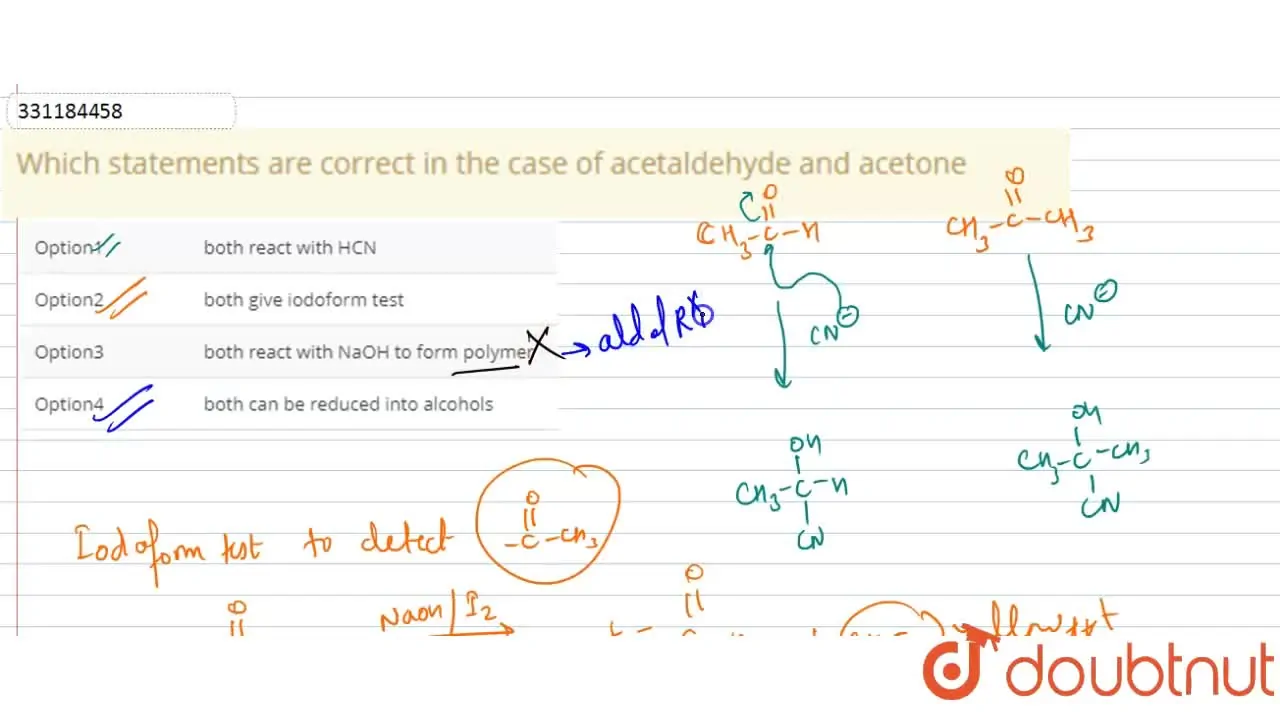 331184458
Which statements are correct in the case of acetaldehyde and acetone
Option1 both react with HCN
Option2 both give iodoform test
Option3 both react with NaOH to form polymer → aldol RX
Option4 both can be reduced into alcohols
O
||
CH3-C-H
O
||
CH3-C-CH3
CN⊖
CN⊖
OH
CH3-C-H
CN
OH
CH3-C-CH3
CN
Iodoform test to detect
O
||
-C-CH3
O
||
NaOH/I2
O
||
doubtnut